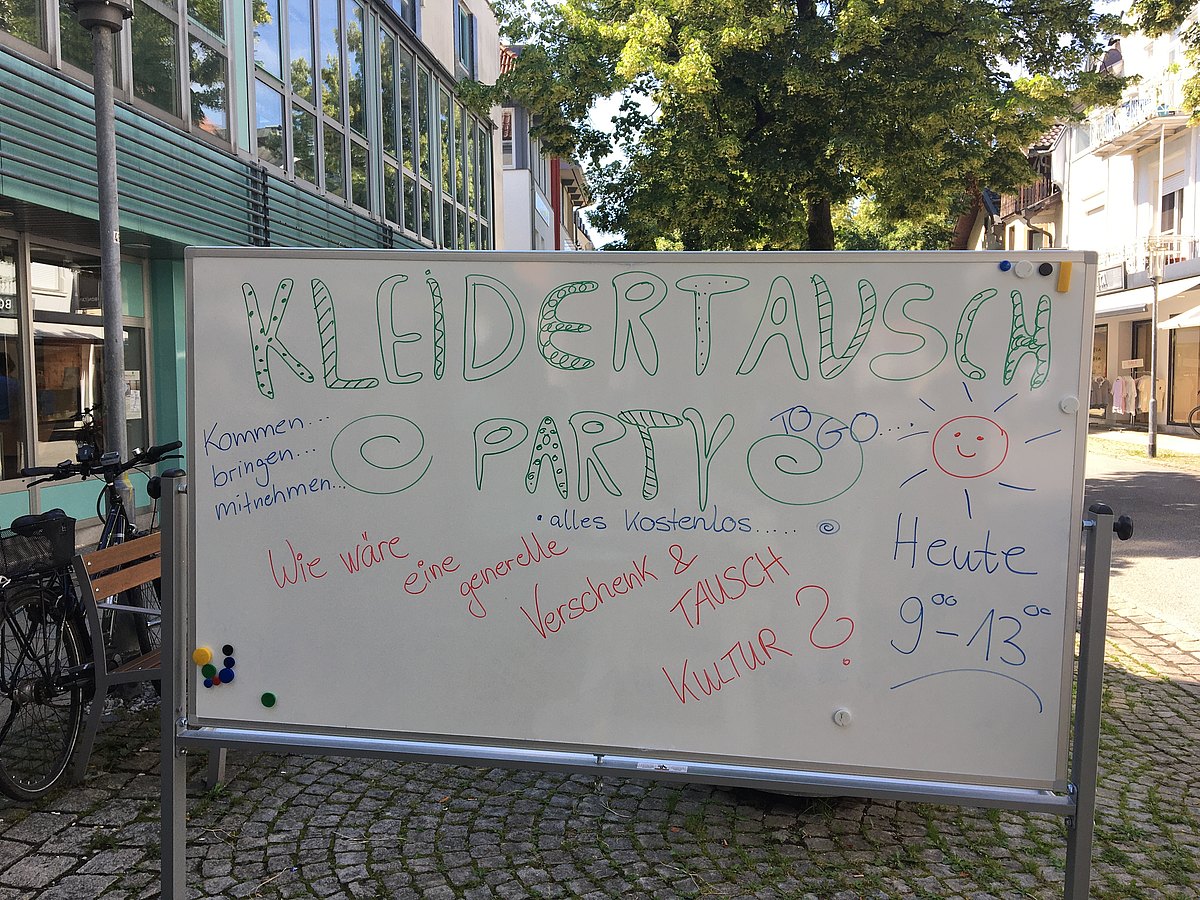 KLEIDERTAUSCH
PARTY
TO GO....
Kommen...
bringen...
mitnehmen...
alles kostenlos.....
Wie wäre eine generelle
Verschenk &
TAUSCH
KULTUR?
Heute
9⁰⁰-13⁰⁰